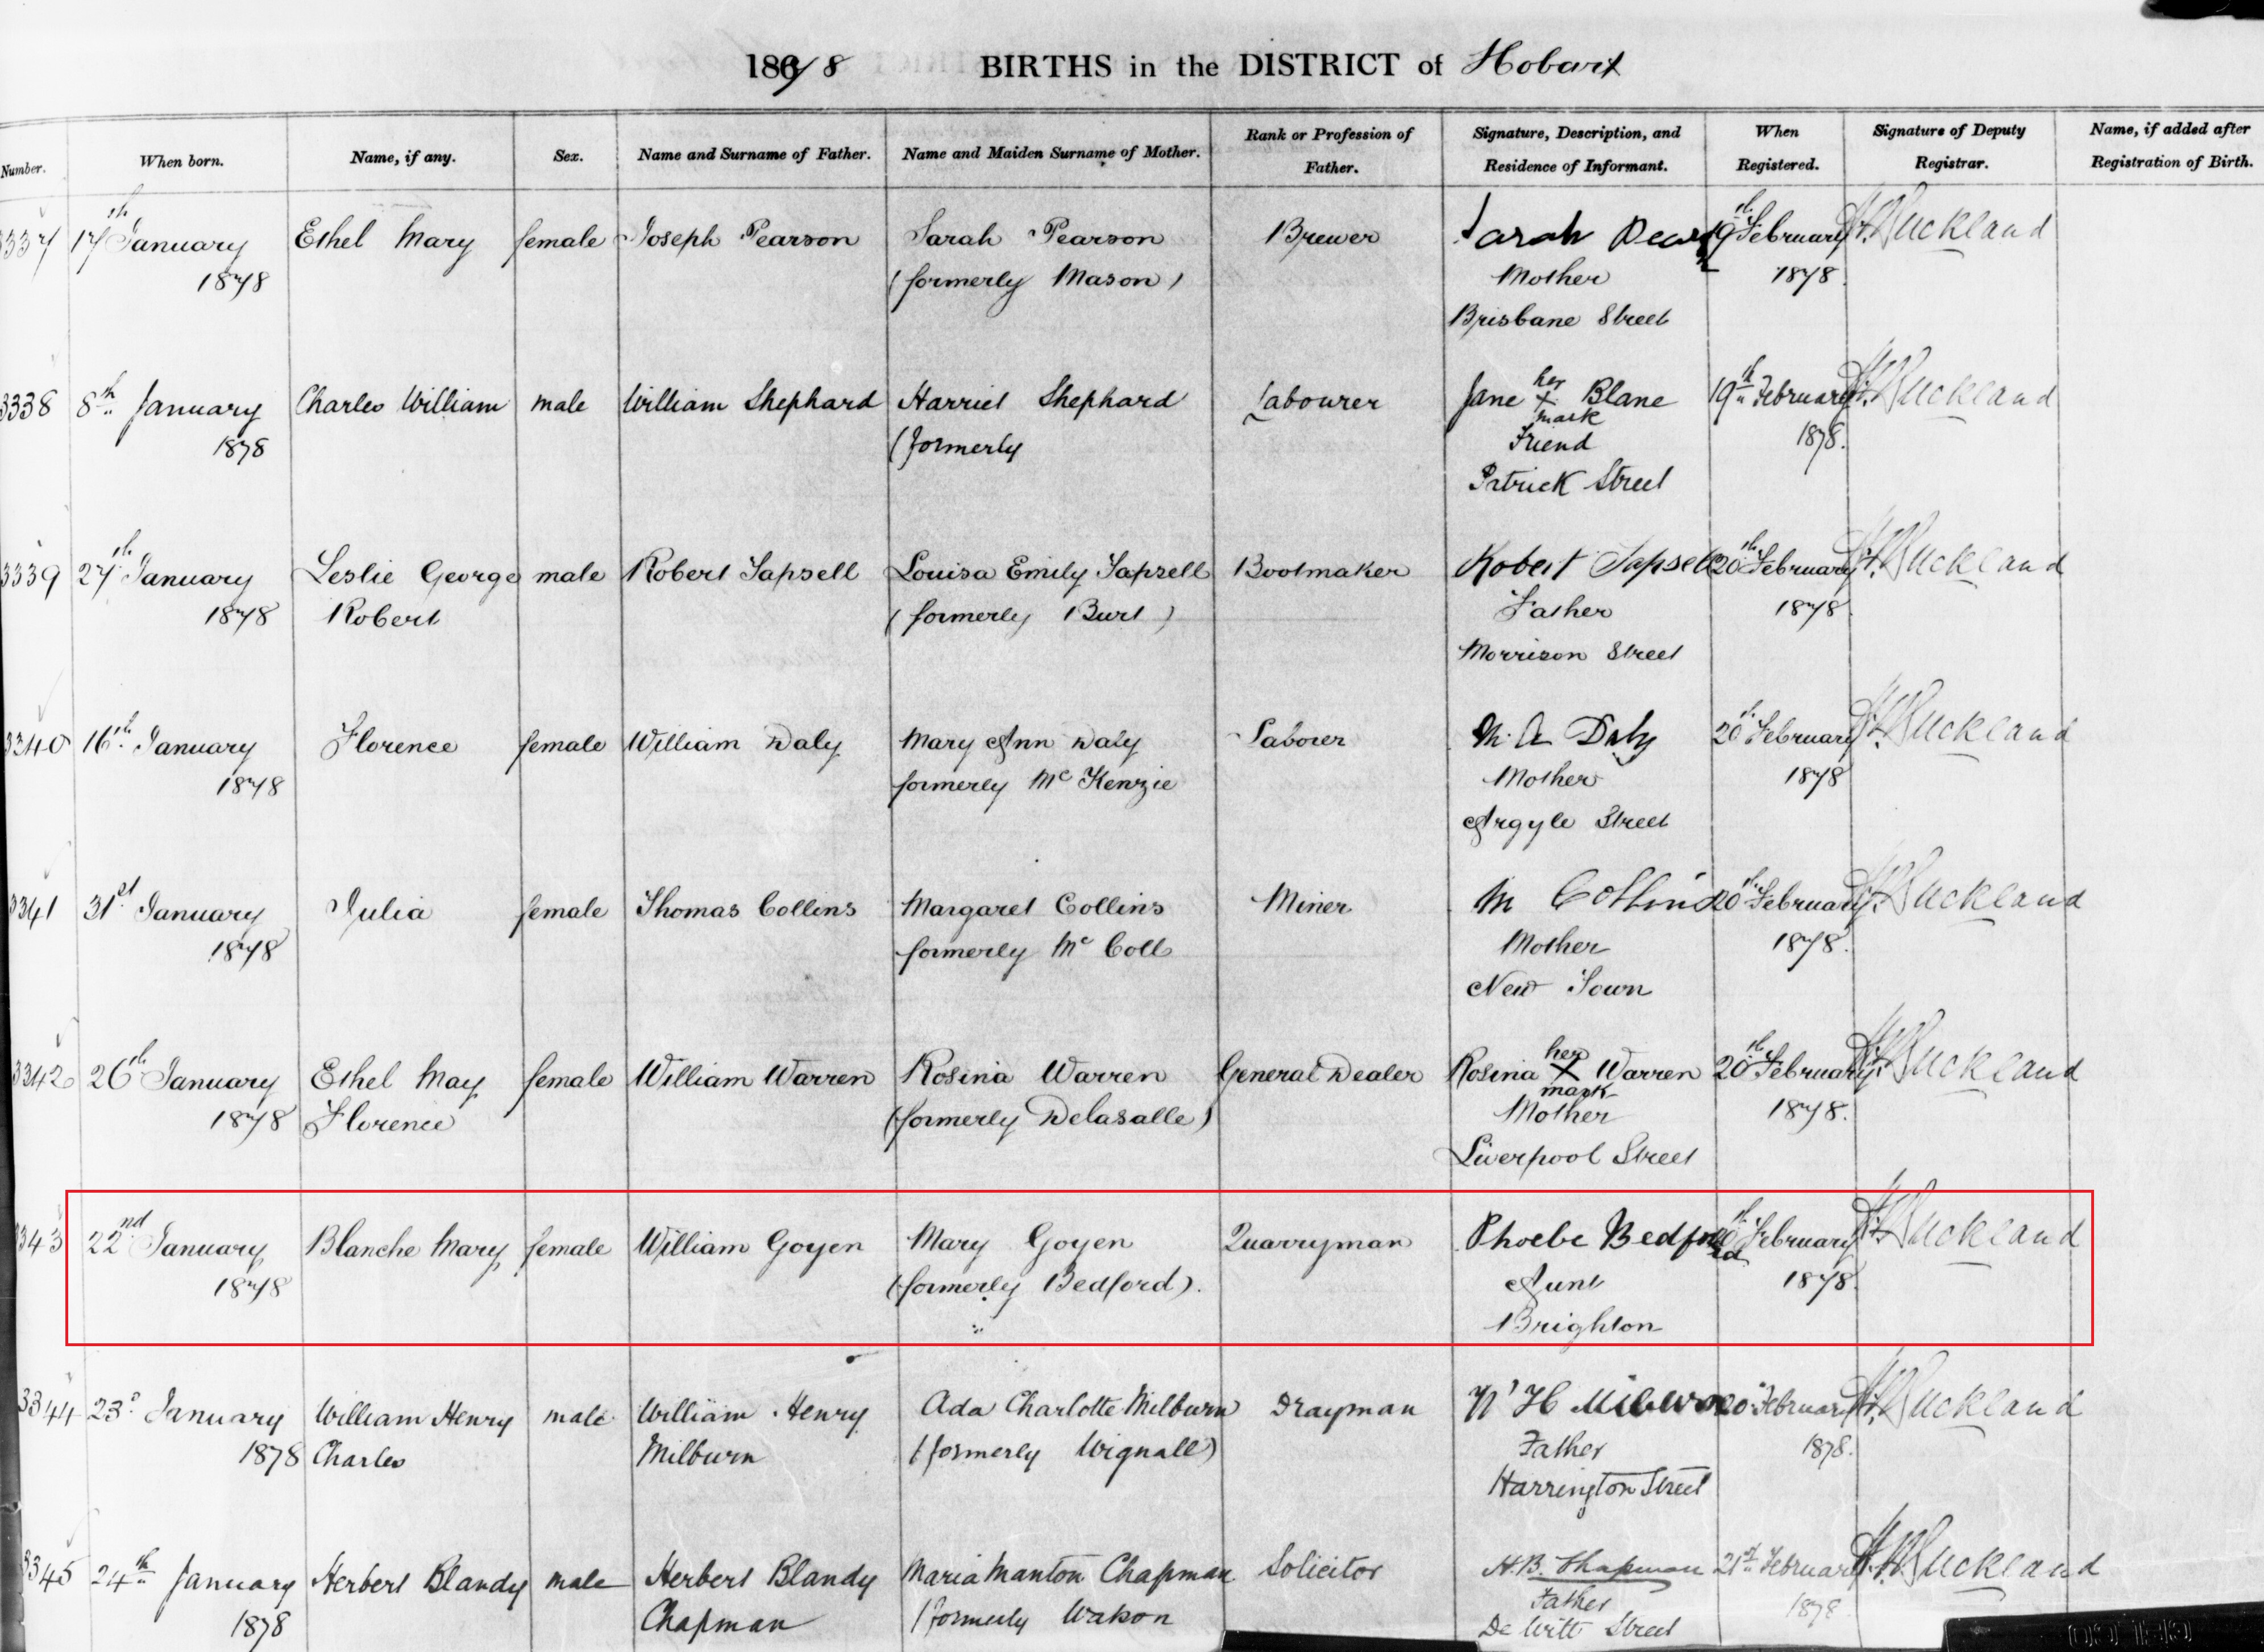 1878 BIRTHS in the DISTRICT of Hobart
Number. When born. Name, if any. Sex. Name and Surname of Father. Name and Maiden Surname of Mother. Rank or Profession of Father. Signature, Description, and Residence of Informant. When Registered. Signature of Deputy Registrar. Name, if added after Registration of Birth.
3337 17th January Ethel Mary female Joseph Pearson Sarah Pearson Brewer Sarah 19th February
1878 (formerly Mason) Mother 1878
Brisbane Street
3338 8th January Charles William male William Shephard Harriet Shephard Labourer Jane her x mark Blane 19th February
1878 (formerly Friend 1878.
Patrick Street
3339 27th January Leslie George male Robert Tapsell Louisa Emily Tapsell Bootmaker Robert Tapsell 20th February
1878 Robert (formerly Burt) Father 1878
Morrison Street
3340 16th January Florence female William Daly Mary Ann Daly Laborer M. A Daly 20th February
1878 formerly McKenzie Mother 1878
Argyle Street
3341 31st January Julia female Thomas Collins Margaret Collins Miner M Collins 20th February
1878 formerly Mc Coll Mother 1878.
New Town
3342 26th January Ethel May female William Warren Rosina Warren General Dealer Rosina her x mark Warren 20th February
1878 Florence (formerly Delasalle) Mother 1878.
Liverpool Street
3343 22nd January Blanche Mary female William Goyen Mary Goyen Quarryman Phoebe Bedford 20th February
1878 (formerly Bedford). Aunt 1878.
Brighton
3344 23d January William Henry male William Henry Ada Charlotte Milburn Drayman W H Milburn 20th February
1878 Charles Milburn (formerly Wignall) Father 1878.
Harrington Street
3345 24th January Herbert Blandy male Herbert Blandy Maria Manton Chapman Solicitor H. B. Chapman 21st February
1878 Chapman (formerly Father 1878
De Witt Street